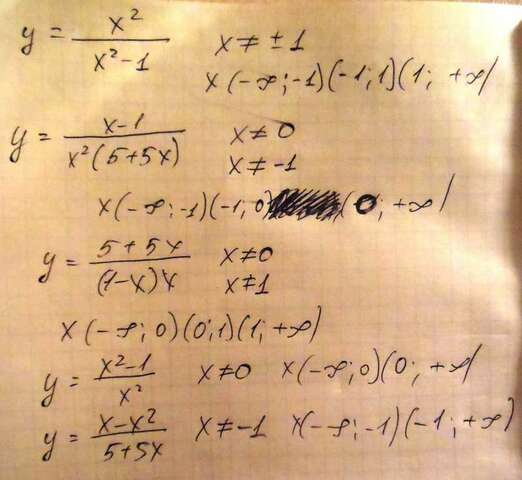 y = x²/(x²-1) x ≠ ±1
x(-∞;-1)(-1;1)(1;+∞)
y = (x-1)/(x²(5+5x)) x ≠ 0
x ≠ -1
x(-∞;-1)(-1,0)(0;+∞)
y = (5+5x)/((1-x)x) x ≠ 0
x ≠ 1
x(-∞;0)(0;1)(1;+∞)
y = (x²-1)/x² x ≠ 0 x(-∞;0)(0;+∞)
y = (x-x²)/(5+5x) x ≠ -1 x(-∞;-1)(-1;+∞)